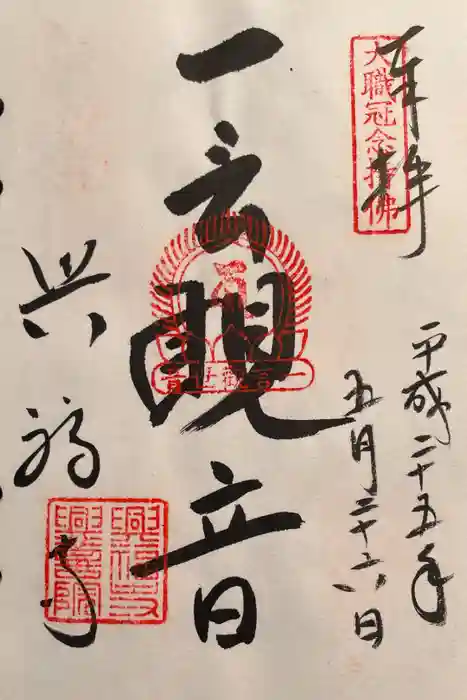 奉拝
大職冠念持佛
平成二十五年
五月二十六日
一言観音
一言觀世音
興福寺